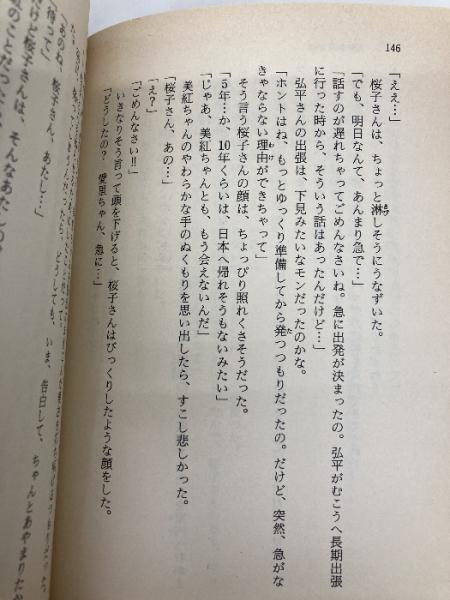 146
「ええ…」
桜子さんは、ちょっと淋しそうにうなずいた。
「でも、明日なんて、あんまり急で…」
「話すのが遅れちゃってごめんなさいね。急に出発が決まったの。弘平がむこうへ長期出張
に行った時から、そういう話はあったんだけど…」
弘平さんの出張は、下見みたいなモンだったのかな。
「ホントはね、もっとゆっくり準備してから発つつもりだったの。だけど、突然、急がな
きゃならない理由ができちゃって」
そう言う桜子さんの顔は、ちょっぴり照れくさそうだった。
「5年…か、10年くらいは、日本へ帰れそうもないみたい」
「じゃあ、美紅ちゃんとも、もう会えないんだ」
美紅ちゃんのやわらかな手のぬくもりを思い出したら、すこし悲しかった。
「桜子さん、あの…」
「え?」
「ごめんなさい!!」
いきなりそう言って頭を下げると、桜子さんはびっくりしたような顔をした。
「どうしたの? 愛里ちゃん、急に…」
どうしても、いま、告白して、ちゃんとあやまりたか
「あのね、桜子さん、あたし…」
待って」
だけど桜子さんは、そんなあたしの
のことだっ